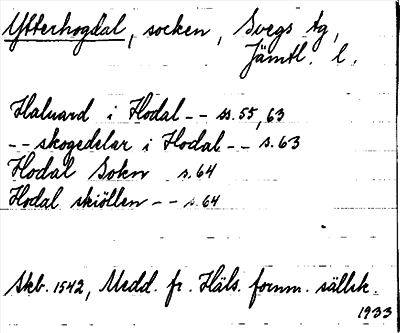 Ytterhogdal, socken, Svegs tg,
Jämtl. l.
Haluard i Hodal -- ss. 55, 63
-- skogedelar i Hodal -- s. 63
Hodal Sokn s. 64
Hodal skiöllen -- s. 64
Skb. 1542, Medd. fr. Häls. fornm. sällsk.
1933